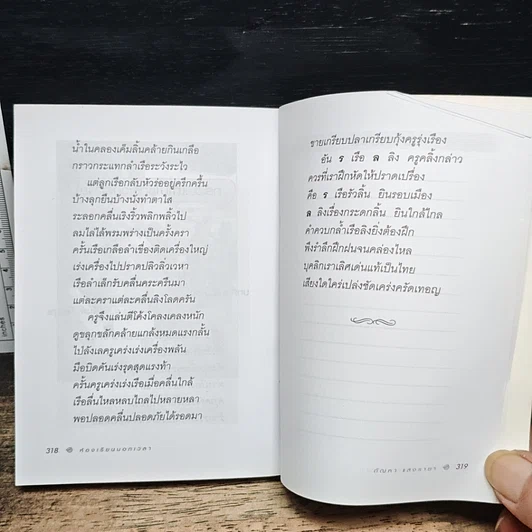 น้ำในคลองเค็มลิ้นคล้ายกินเกลือ
กราวกระแทกลำเรือระวังระไว
แต่ลูกเรือกลับหัวร่ออยู่ครึกครื้น
บ้างลุกยืนบ้างนั่งทำตาใส
ระลอกคลื่นเริงริ้วพลิกพลิ้วไป
ลมไล่ไส้พรมพร่างเป็นครั้งครา
ครั้นเรือเกลือลำเขื่องติดเครื่องใหญ่
เร่งเครื่องไปปราดปลิวลิ่วเวหา
เรือลำเล็กรับคลื่นครืนมา
แต่ละคราแต่ละคลื่นลิงโลดครัน
ครูจึงแล่นตีโค้งโคลงเคลงหนัก
ดูขลุกขลักคล้ายแกล้งหมดแรงกลั้น
ไปลังเลครูเคร่งเร่งเครื่องพลัน
มือบิดคันเร่งรุดสุดแรงทำ
ครั้นครูเคร่งเร่งเรือเมื่อคลื่นใกล้
เรือลื่นไหลหลบไถลไปหลายหลา
พอปลอดคลื่นปลอดภัยได้รอดมา
318
ห้องเรียนนอกเวลา
ขายเกรียบปลาเกรียบกุ้งครูรุ่งเรือง
อัน ร เรือ ล ลิง ครูคลิ้งกล่าว
ควรที่เราฝึกหัดให้ปราดเปรื่อง
คือ ร เรือรัวลิ้น ยินรอบเมือง
ล ลิงเรื่องกระดกลิ้น ยินใกล้ไกล
คำควบกล้ำเรือลิงยิ่งต้องฝึก
พึงรำลึกฝึกฝนจนคล่องไหล
บุคลิกเราเลิศเด่นแท้เป็นไทย
เสียงใดใคร่เปล่งชัดเคร่งครัดเทอญ
319